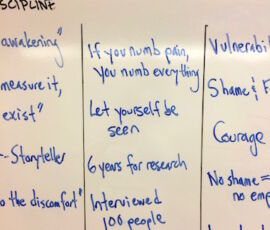 SCIPLINE
awakening"
measure it,
exist"
-- Storyteller
o the discomfort"
If you numb pain,
you numb everything
Let yourself be
seen
6 years for research
Interviewed
100 people
Vulnerabil
Shame & F
Courage
No shame =
no emp